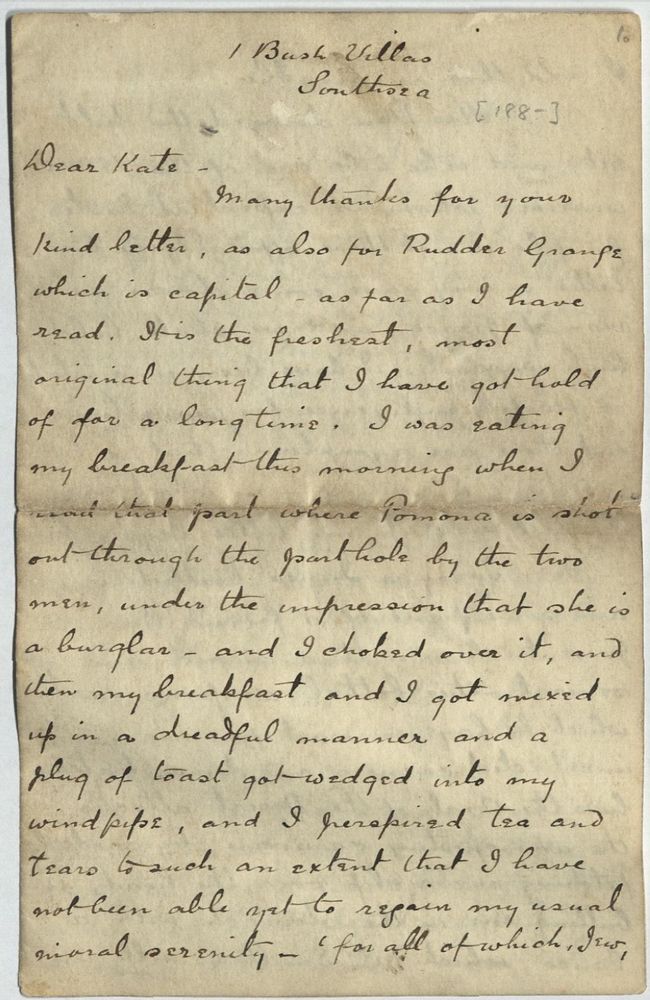 10
1 Bush Villas
Southsea
[188-]
Dear Kate -
Many thanks for your
kind letter, as also for Rudder Grange
which is capital - as far as I have
read. It is the freshest, most
original thing that I have got hold
of for a long time. I was eating
my breakfast this morning when I
read that part where Pomona is shot
out through the porthole by the two
men, under the impression that she is
a burglar - and I choked over it, and
then my breakfast and I got mixed
up in a dreadful manner and a
plug of toast got wedged into my
windpipe, and I perspired tea and
tears to such an extent that I have
not been able yet to regain my usual
moral serenity - 'for all of which, Jew,